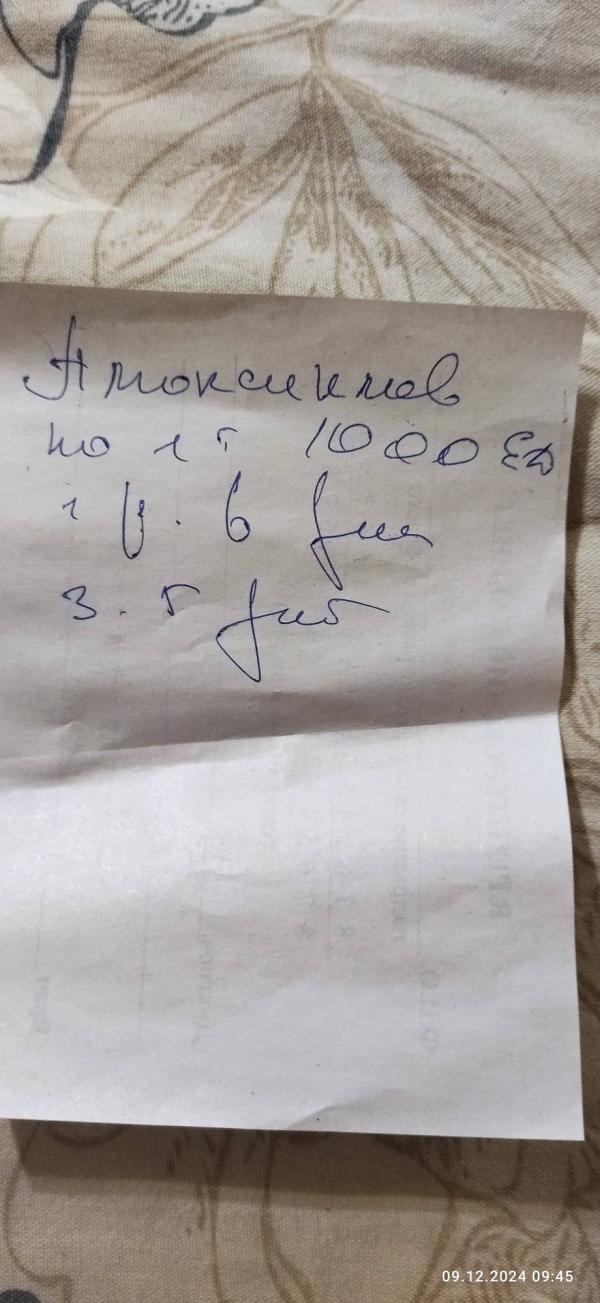 Амоксиклав
по 1 т 1000 ЕД
1 р. в дня
3. 5 дней
09.12.2024 09:45